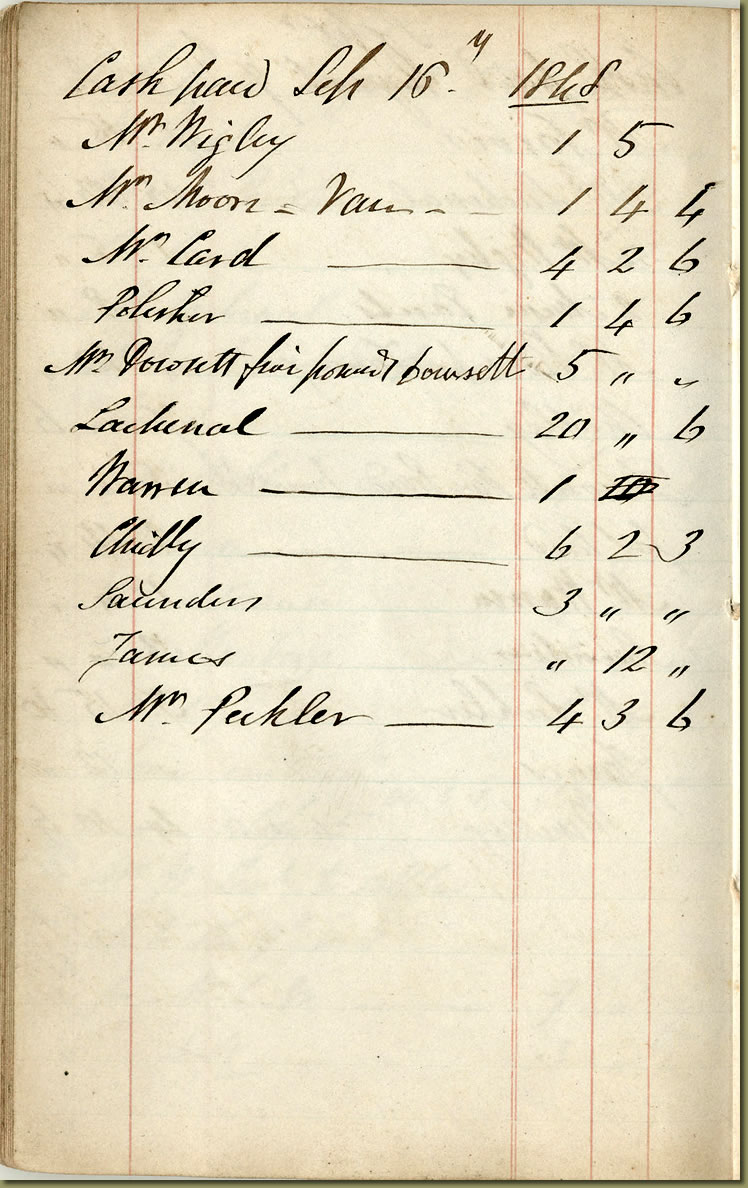 Cash paid Sep 16.y 1868
Mr. Wigley 1 5
Mr. Moon - Van - - 1 4 4
Mr. Card 4 2 6
Polisher 1 4 6
Mr. Dowsett five pound dowsett 5 " "
Lachenal 20 " 6
Warren 1
Chidly 6 2 3
Saunders 3 " "
James " 12 "
Mr. Peckler 4 3 6